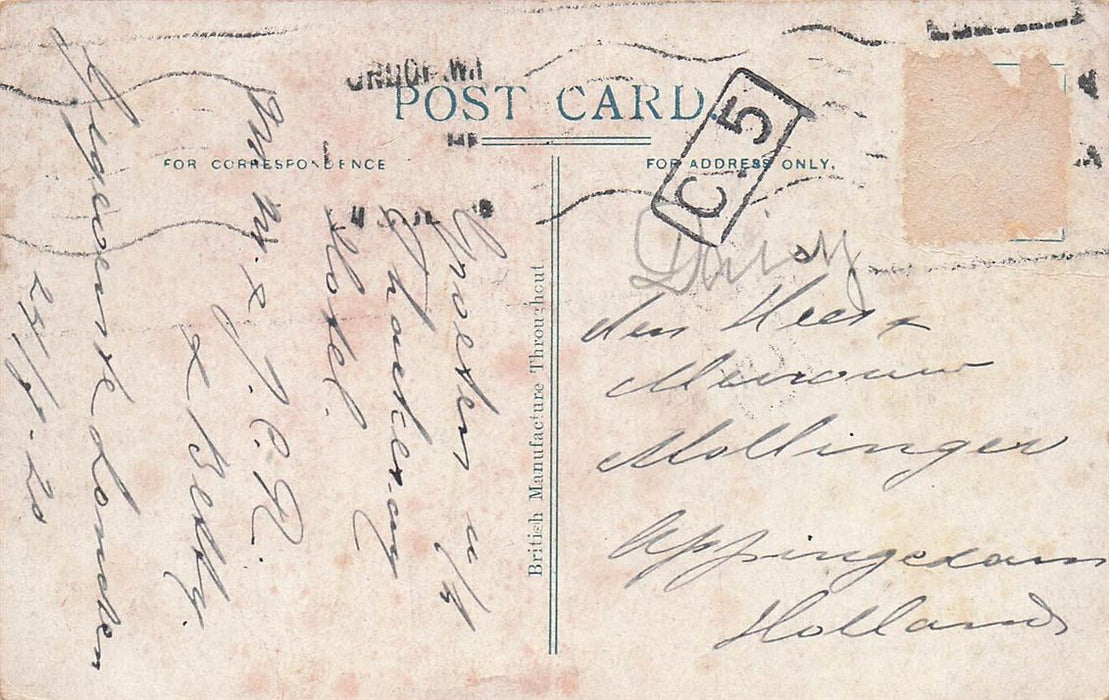 POST CARD.
FOR CORRESPONDENCE
FOR ADDRESS ONLY.
C.5
British Manufacture Throughout
Groeten u/h
Thackeray
Hotel.
J. C. R.
& Betty.
Londen
Daisy
den Heer &
Mevrouw
Mollinger
Appingedam
Holland